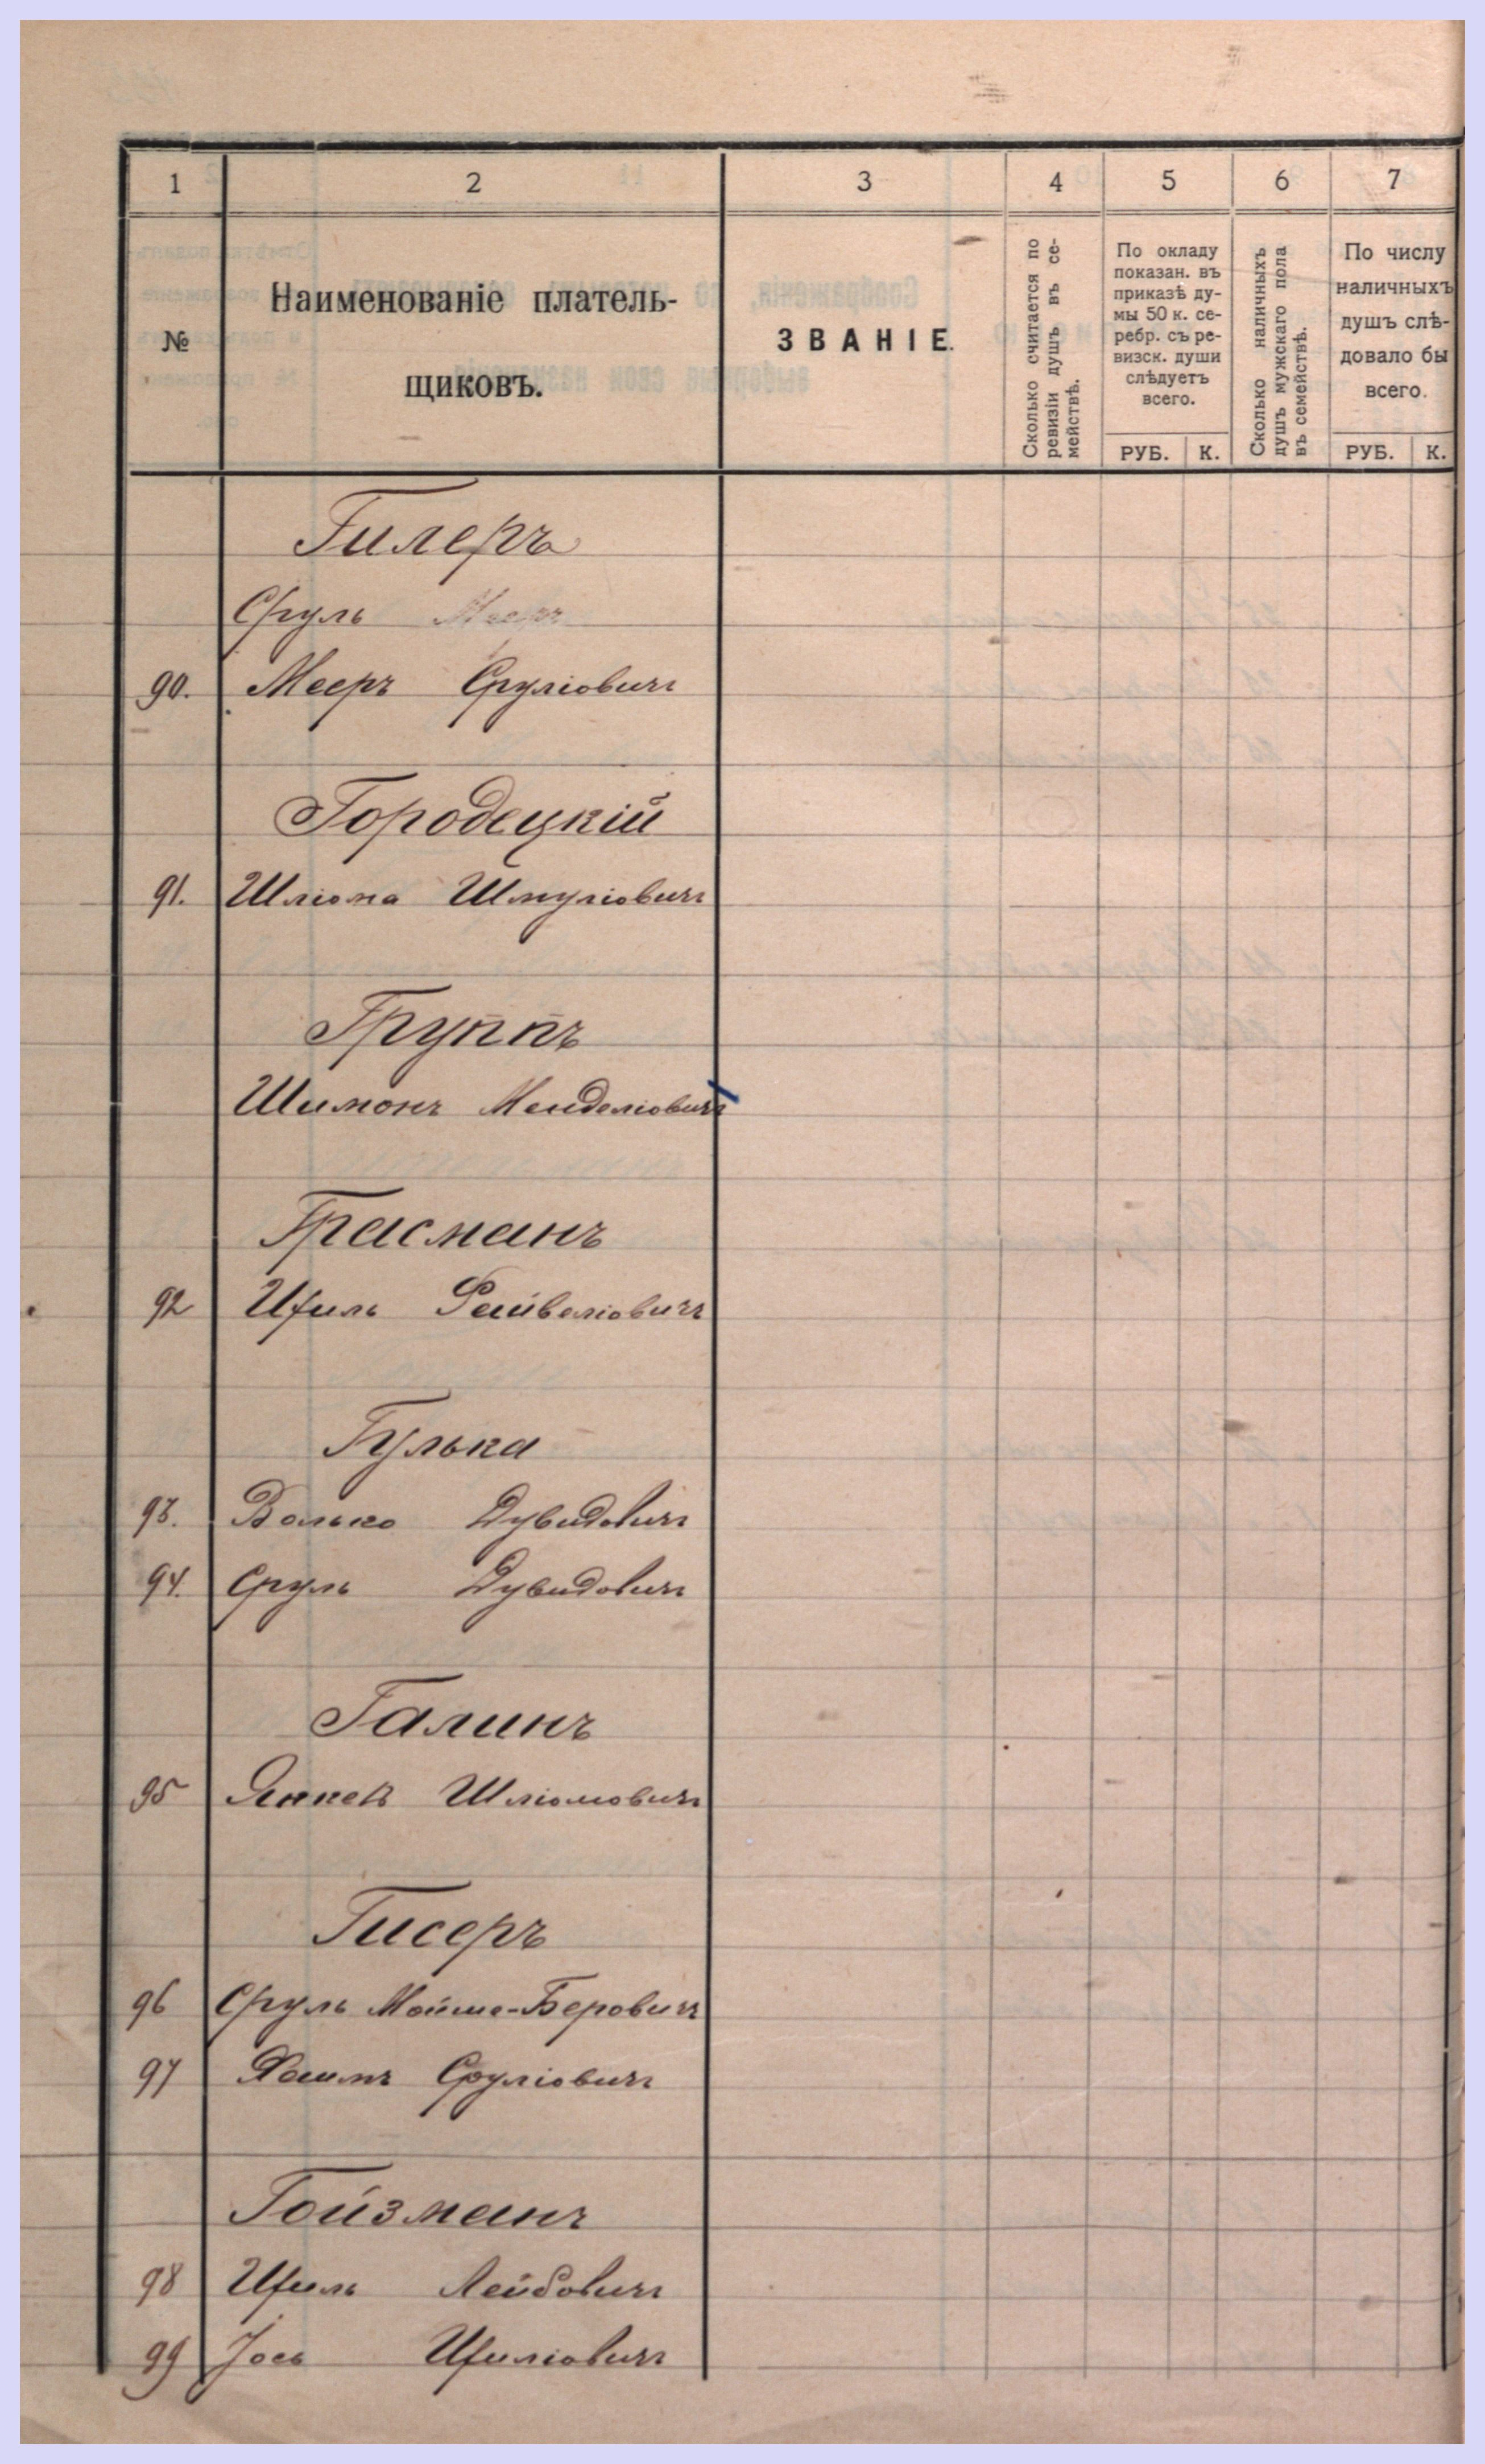 1 2 3 4 5 6 7
№
Наименованіе платель-
щиковъ.
ЗВАНІЕ.
Сколько считается по
ревизіи душъ въ се-
мействѣ.
По окладу
показан. въ
приказѣ ду-
мы 50 к. се-
ребр. съ ре-
визск. души
слѣдуетъ
всего.
РУБ. К.
Сколько наличныхъ
душъ мужскаго пола
въ семействѣ.
По числу
наличныхъ
душъ слѣ-
довало бы
всего.
РУБ. К.
Гилеръ
Сруль Мееръ
90. Мееръ Сруліовичъ
Городецкій
91. Шліома Шмуліовичъ
Группъ
Шимонъ Менделіовичъ
Грасманъ
92 Ицикъ Файвеліовичъ
Гулька
93. Волько Дувидовичъ
94. Сруль Дувидовичъ
Галинъ
95 Янкель Шліомовичъ
Гисеръ
96 Сруль Мойше-Беровичъ
97 Хаимъ Сруліовичъ
Гойзманъ
98 Лейбовичъ
99 Іось